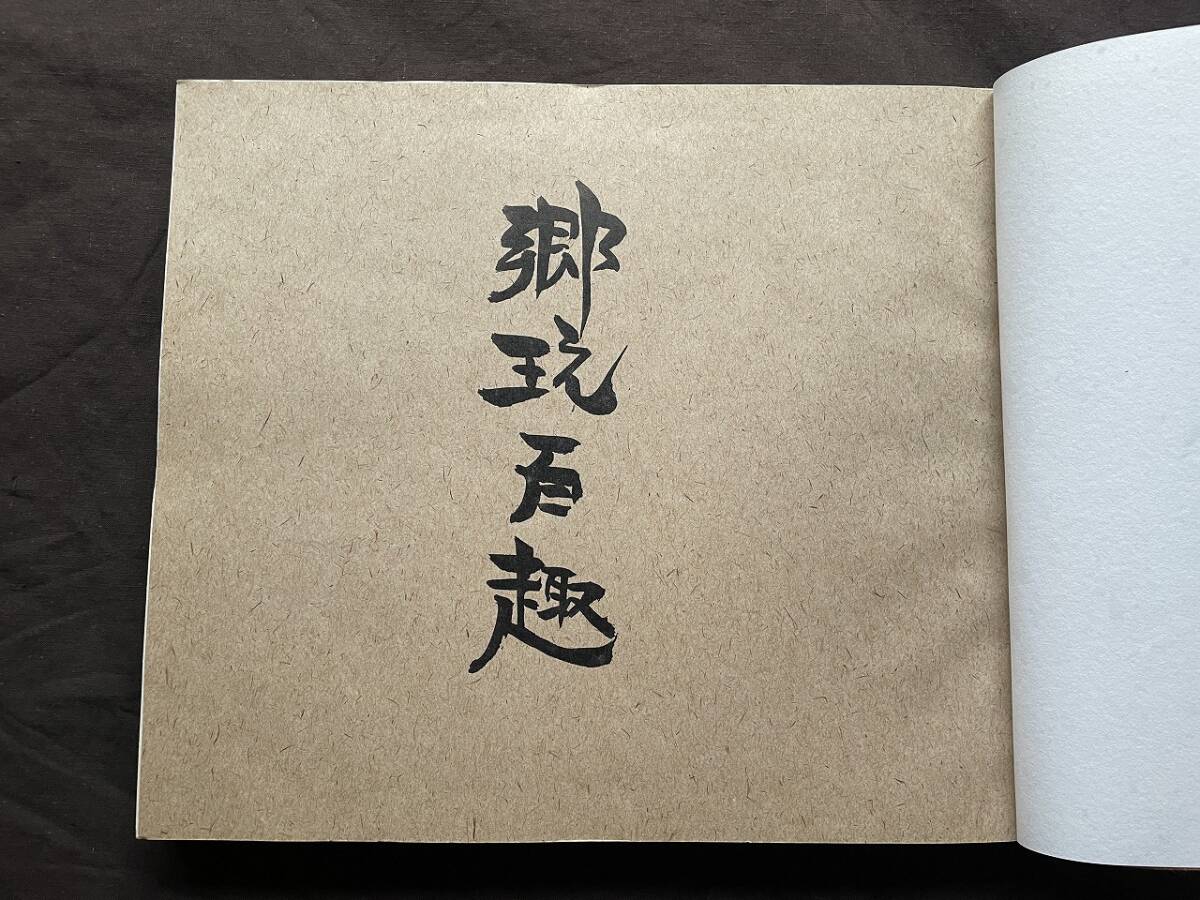 郷玩百趣